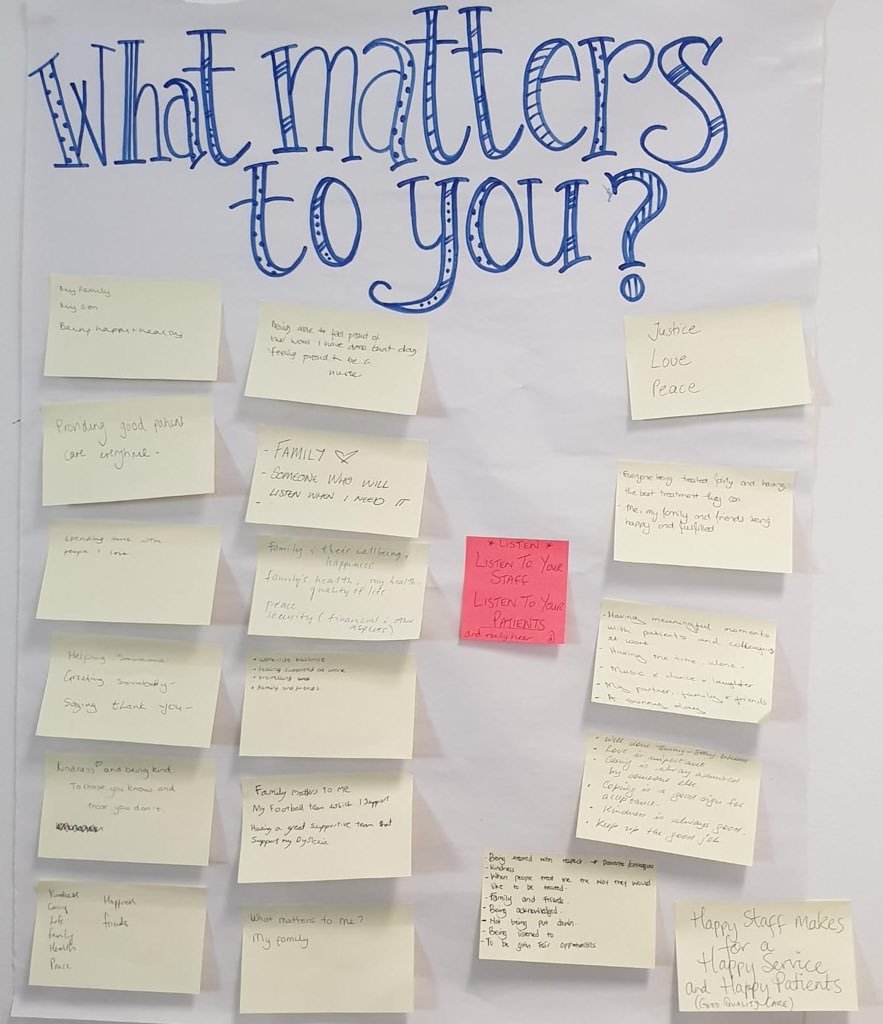 What matters
to you?
My Family
My son
Being happy + healthy
Providing good patient
care everytime.
Spending time with
people I love
Helping Someone
Greeting Somebody-
Saying thank you-
Kindness and being kind.
To those you know and
those you don't.
Kindness
Caring
Life
Family
Health
Peace
Happiness
friends
Being able to feel proud of
the work I have done that day
feeling proud to be a
nurse
- FAMILY
- SOMEONE WHO WILL
LISTEN WHEN I NEED IT
family & their wellbeing +
happiness
family's health, my health,
quality of life
peace
security (financial & other
aspects)
• work-life balance
• feeling supported at work
• travelling and
• family and friends
Family matters to me
My Football team which I support
Having a great supportive team that
support my Dyslexia
What matters to me?
My family
* LISTEN *
LISTEN TO YOUR
STAFF
LISTEN TO YOUR
PATIENTS
and really hear
Justice
Love
Peace
- Everyone being treated fairly and having
the best treatment they can
- Me, my family and friends being
happy and fulfilled
- Having meaningful moments
with patients and colleagues
at work
- Having me time, alone.
- Music & dance & laughter
- My partner, family & friends
- A sunny day
- Well done
- Love is important
- Caring is always admired
by someone else
- Coping is a good sign for
acceptance.
- Kindness is always good.
- Keep up the good job
- Being treated with respect
- Kindness
- When people treat me the way they would
like to be treated.
- Family and Friends
- Being acknowledged.
- Not being put down.
- Being listened to
- To be given fair opportunities
Happy Staff makes
for a
Happy Service
and Happy Patients
(GOOD QUALITY CARE)